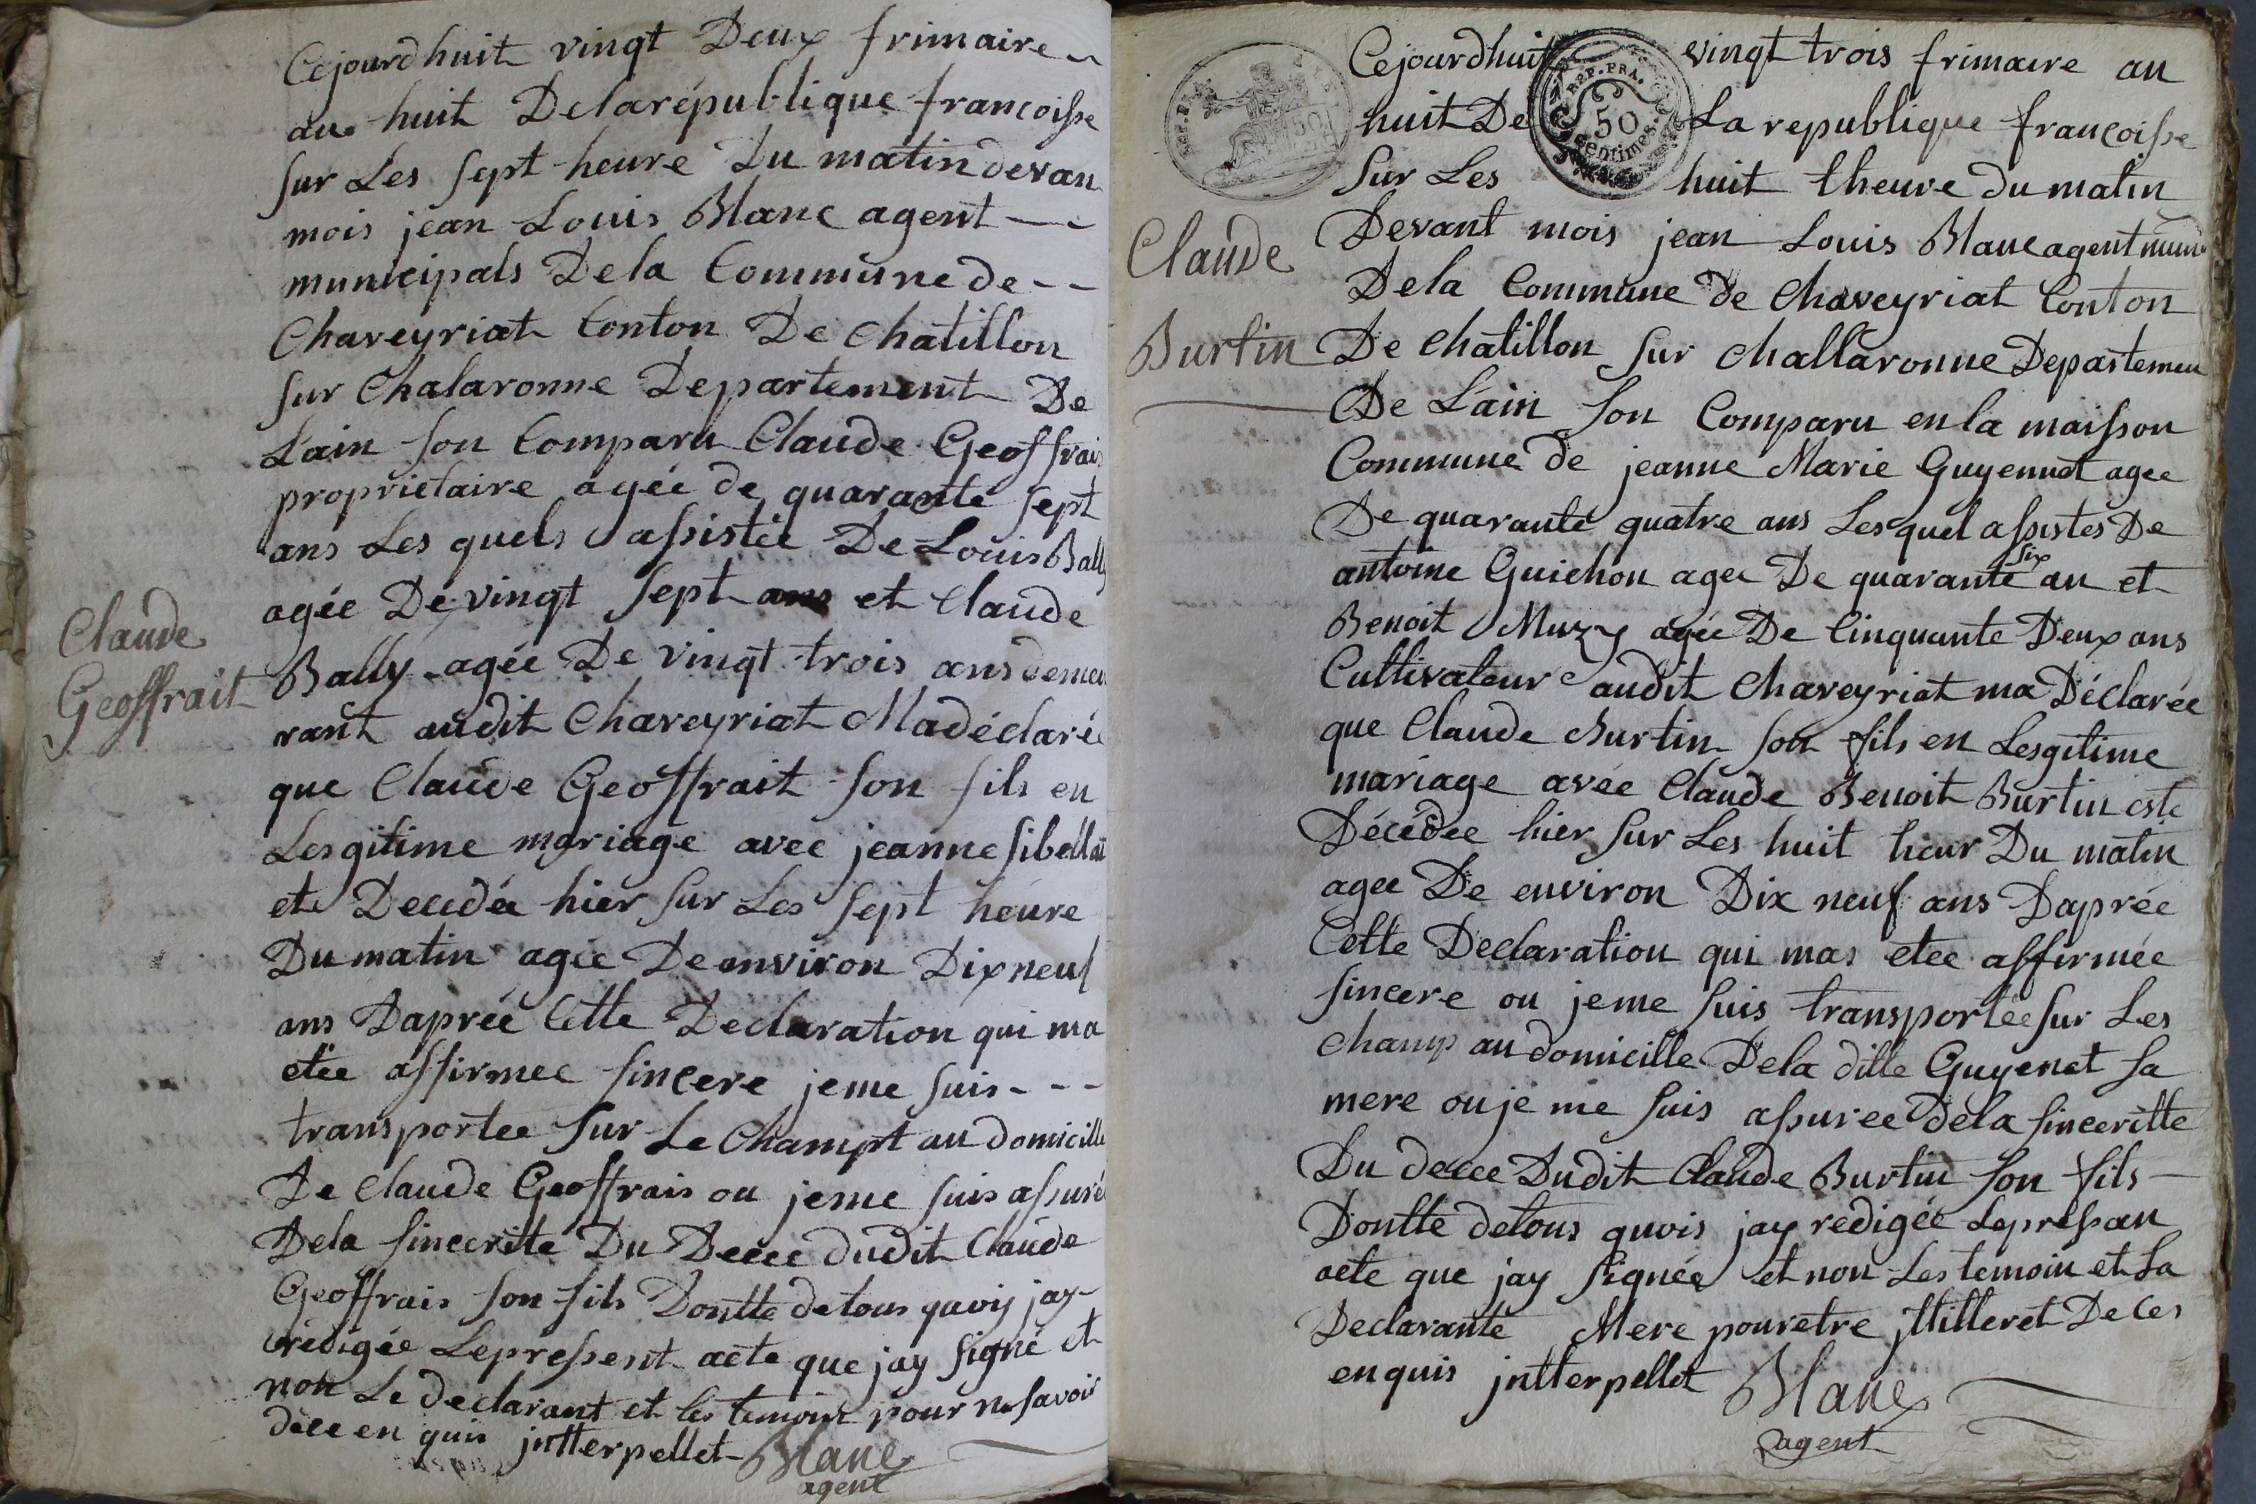 Cejourdhuit vingt Deux frimaire
au huit Delarépublique françoisse
sur Les sept heure Du matin devan
mois jean Louis Blanc agent
municipals Dela Commune de
Chaveyriat Conton De chatillon
sur Chalaronne Departement De
Lain son Comparu Claude Geoffrais
proprietaire agée de quarante sept
ans Les quels assistée De Louis Bally
agée De vingt sept ans et Claude
Claude
Bally agée De vingt trois ans demeu
Geoffrait
rant audit Chaveyriat Madéclarée
que Claude Geoffrait son fils en
Lesgitime mariage avec jeanne
ete Decedée hier sur Les sept heure
Du matin agée De environ Dix neuf
ans Daprée Cette Declaration qui ma
etée affirmee sincere jeme suis
transportee sur Le Champt au domicille
De Claude Geoffrais ou jeme suis assuré
Dela sincerite Du Decee dudit Claude
Geoffrais son fils Dontte detous quoy jay
redigée Lepressent acte que jay signé et
non Le declarant et les temoins pour ne savoir
dece en quis jntterpellet Blanc
agent
Cejourdhuit vingt trois frimaire au
REP. FRA.
50
Centimes.
huit De La republique françoisse
sur Les huit theure du matin
Devant mois jean Louis Blanc agent
Claude
Dela Commune de Chaveyriat Conton
Burtin
De chatillon sur challaronne Departemen
De Lain son Comparu en la maisson
Commune de jeanne Marie Guyennet agee
De quarante quatre ans Lesquel assistes De
antoine Guichon agee De quarante six an et
Benoit Muzy agée De Cinquante Deux ans
Cultivateur audit Chaveyriat ma Déclarée
que Claude Burtin son fils en Lesgitime
mariage avée Claude Benoit Burtin este
Décédee hier sur Les huit heur Du matin
agee De environ Dix neuf ans Daprée
Cette Declaration qui mas etee affirmée
sincere ou jeme suis transportée sur Les
champ au domicille Dela ditte Guyenet sa
mere ou je me suis assuree dela sinceritte
Du decee Dudit Claude Burtin son fils
Dontte detous quois jay redigée Lepressan
acte que jay signée et non Les temoin et La
Declarante Mere pouretre jttilleret De ces
enquis jntterpellet Blanc
agent